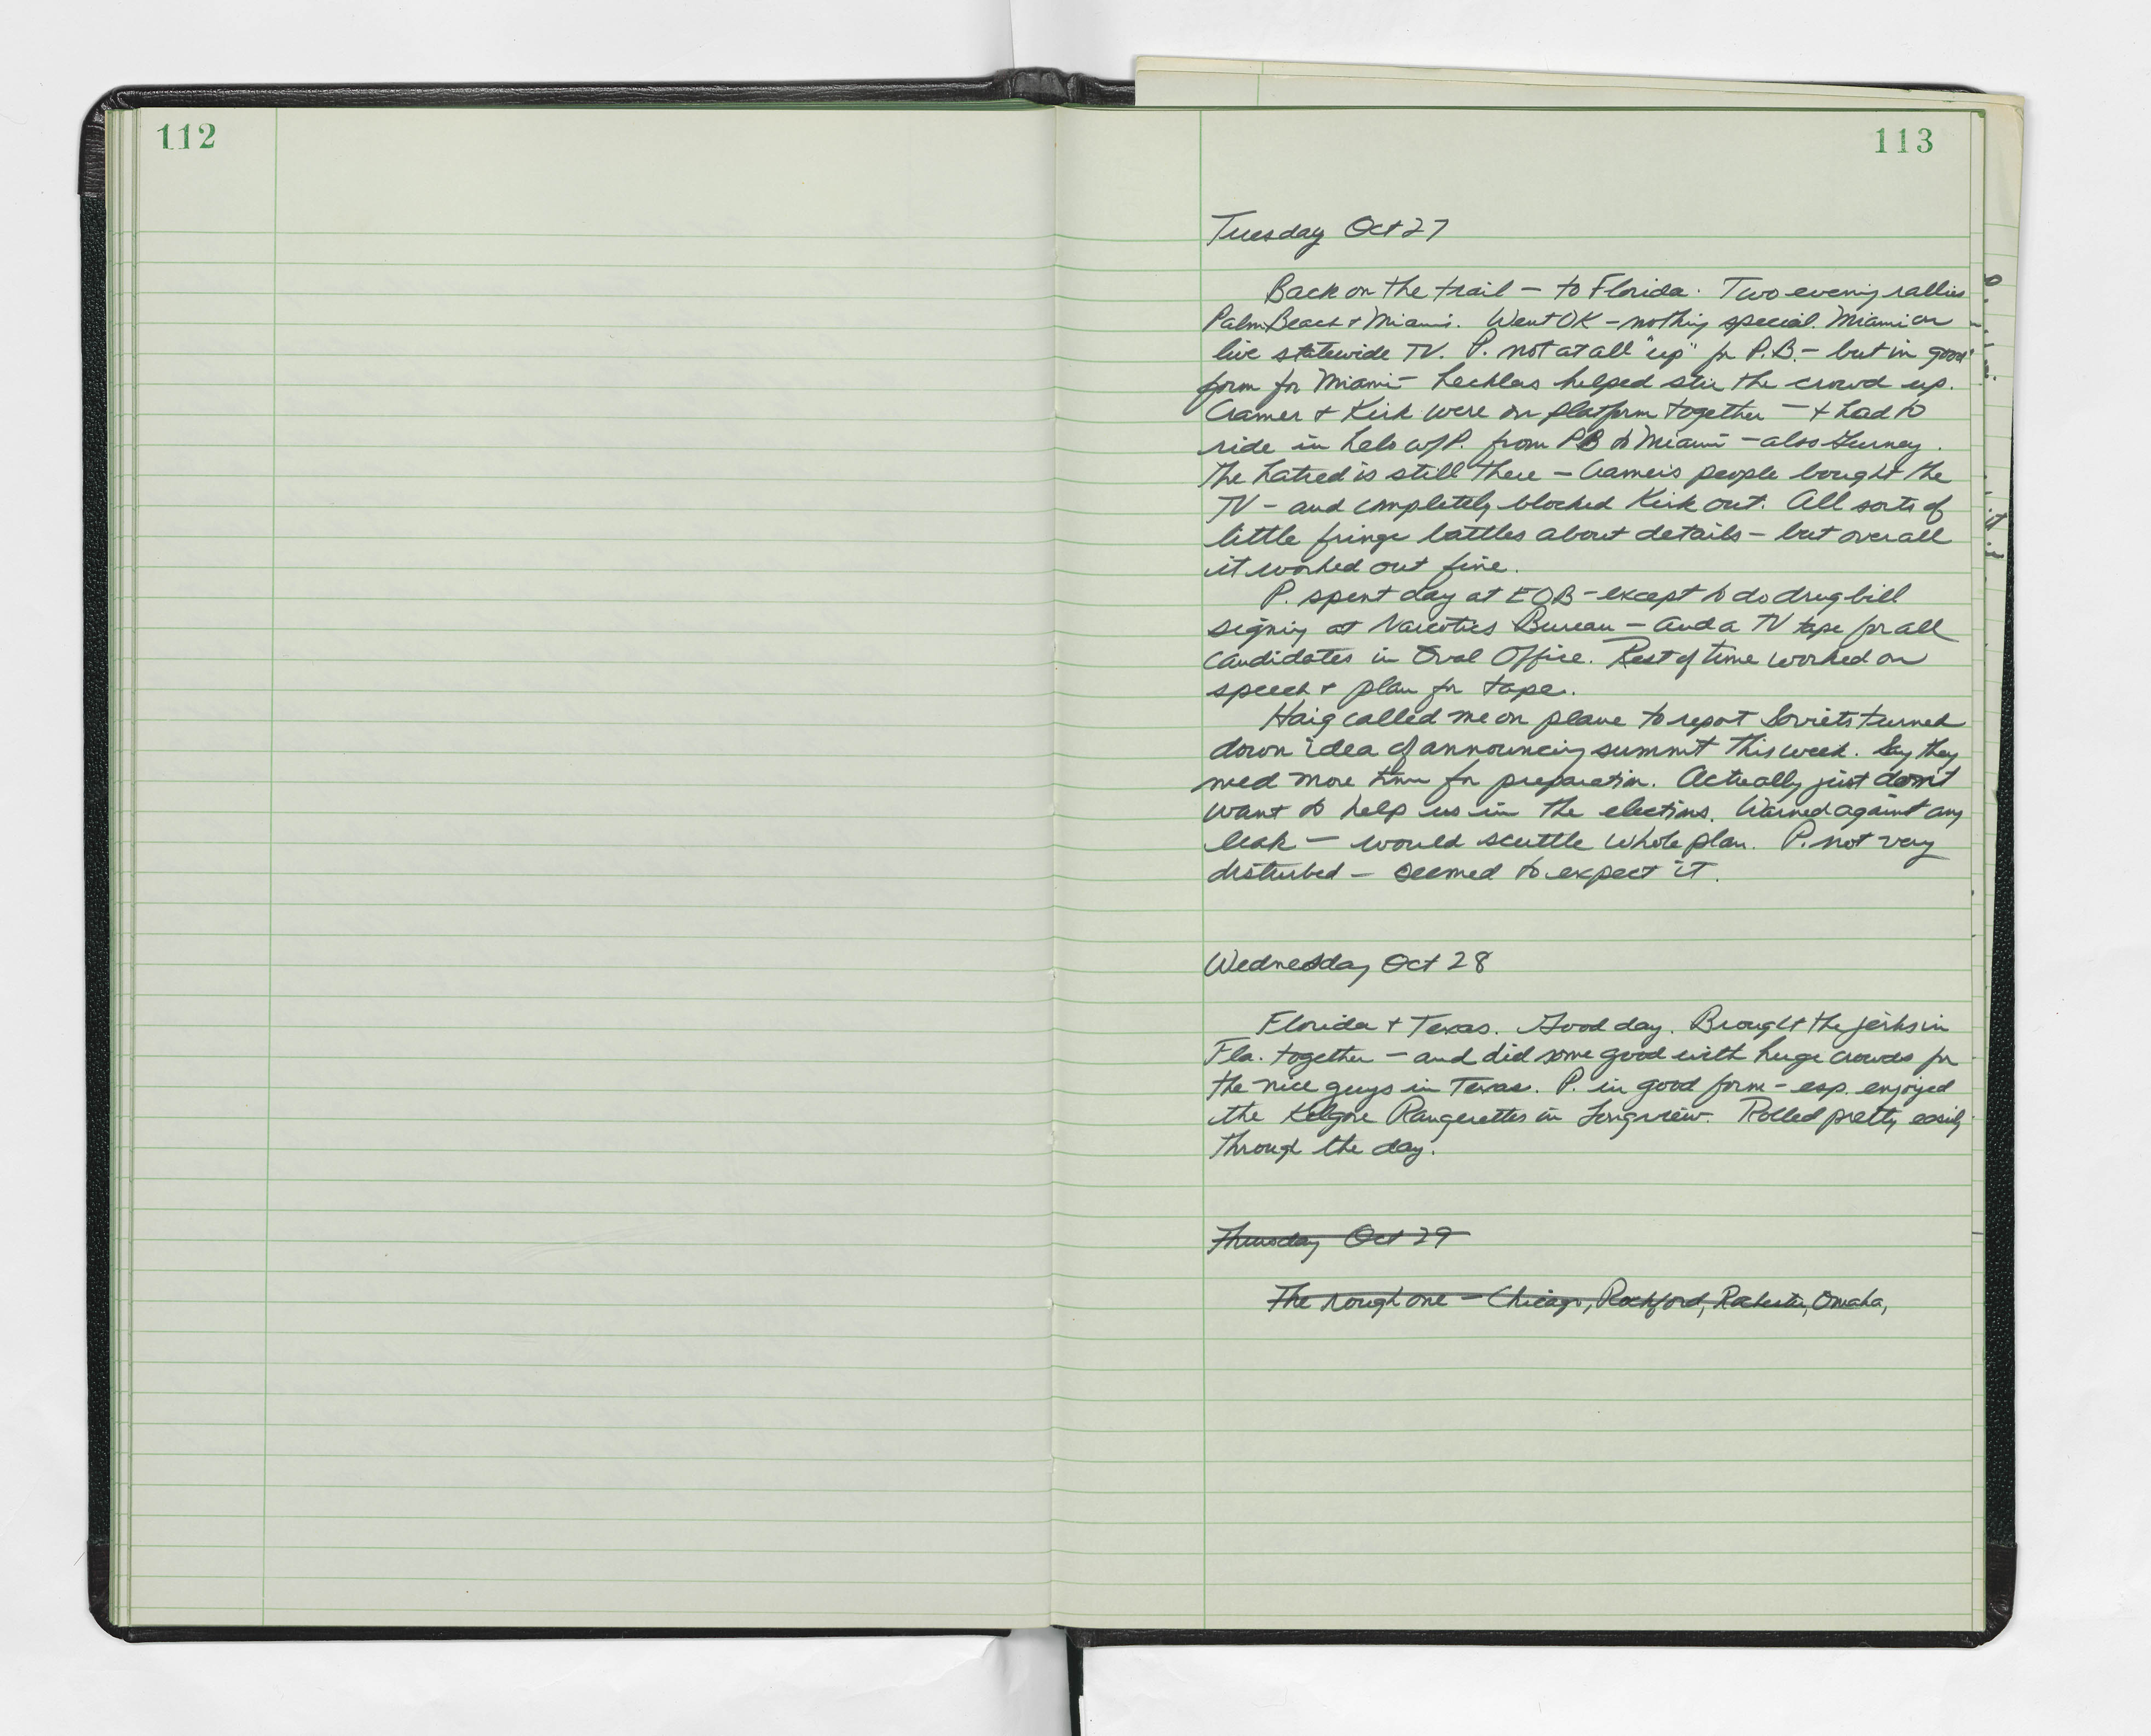 112
113
Tuesday Oct 27
Back on the trail – to Florida. Two evening rallies
Palm Beach & Miami. Went OK – nothing special. Miami on
live statewide TV. P. not at all "up" for P.B. – but in good
form for Miami – hecklers helped stir the crowd up.
Cramer & Kirk were on platform together – & had to
ride in helo w/P. from PB to Miami – also Gurney.
The hatred is still there – Cramer's people bought the
TV – and completely blocked Kirk out. All sorts of
little fringe battles about details – but overall
it worked out fine.
P. spent day at EOB – except to do drug bill
signing at Narcotics Bureau – and a TV tape for all
candidates in Oval Office. Rest of time worked on
speech & plan for tape.
Haig called me on plane to report Soviets turned
down idea of announcing summit this week. Say they
need more time for preparation. Actually just don't
want to help us in the elections. Warned against any
leak – would scuttle whole plan. P. not very
disturbed – seemed to expect it.
Wednesday Oct 28
Florida & Texas. Good day. Brought the jerks in
Fla. together – and did some good with huge crowds for
the nice guys in Texas. P. in good form – esp. enjoyed
the Kilgore Rangerettes in Longview. Rolled pretty easily
through the day.
Thursday Oct 29
The rough one – Chicago, Rockford, Rochester, Omaha,